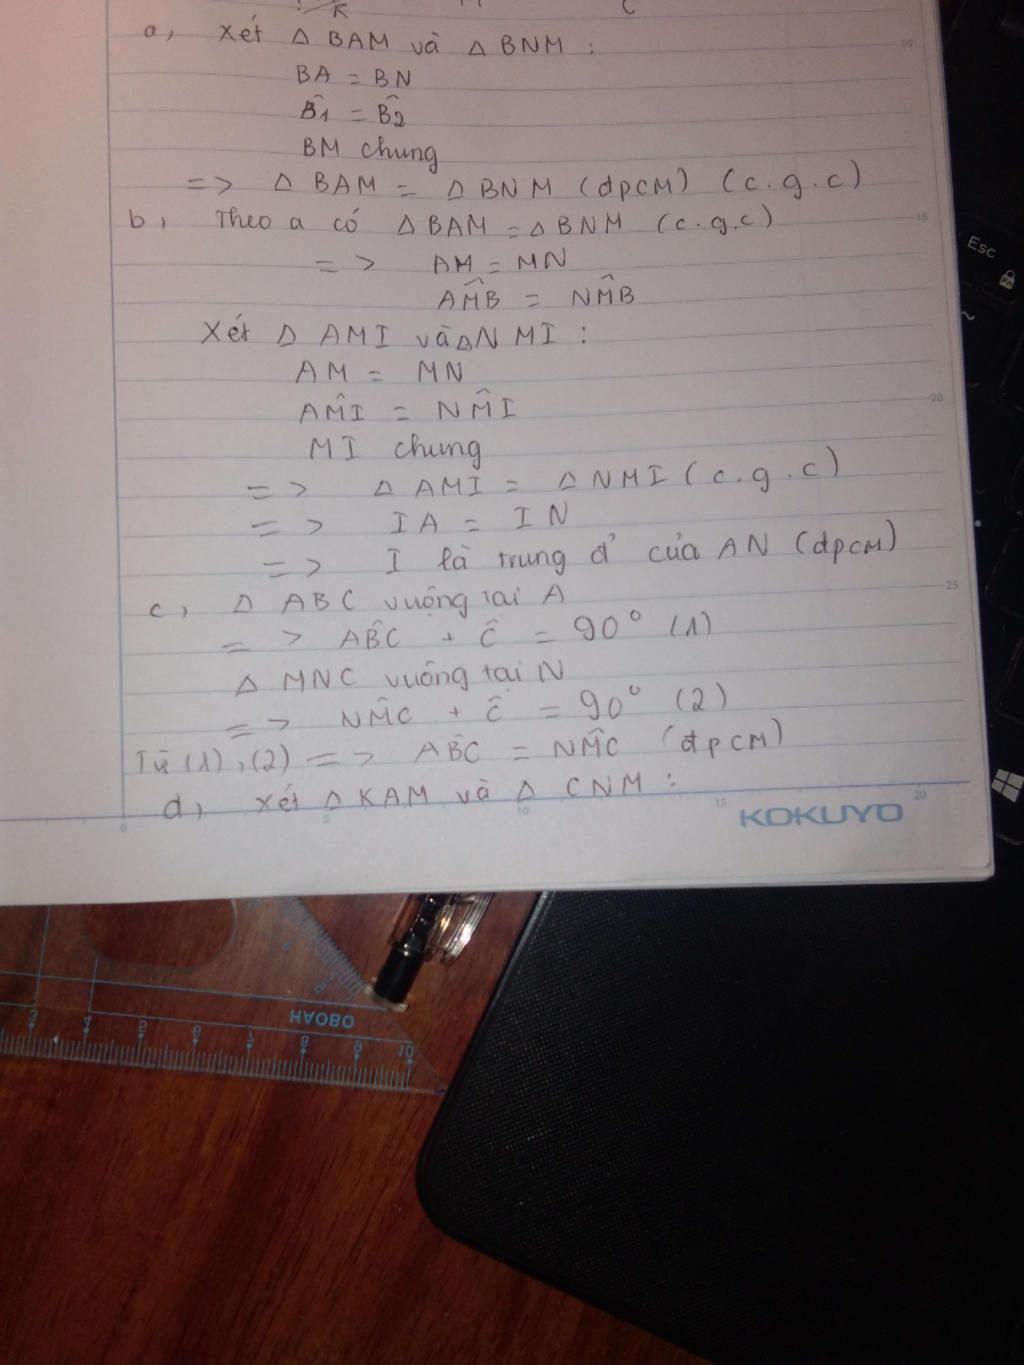 K C
a, Xét Δ BAM và Δ BNM :
BA = BN
B̂1 = B̂2
BM chung
=> Δ BAM = Δ BNM (đpCM) (c.g.c)
b, Theo a có Δ BAM = Δ BNM (c.g.c)
=> AM = MN
AM̂B = NM̂B
Xét Δ AMI và Δ NMI :
AM = MN
AM̂I = NM̂I
MI chung
=> Δ AMI = Δ NMI (c.g.c)
=> IA = IN
=> I là trung đ' của AN (đpCM)
c, Δ ABC vuông tại A
=> AB̂C + Ĉ = 90° (1)
Δ MNC vuông tại N
=> NM̂C + Ĉ = 90° (2)
Từ (1), (2) => AB̂C = NM̂C (đpCM)
d, Xét Δ KAM và Δ CNM :
KOKUYO
Esc
HAOBO
3 4 5 6 7 8 9 10